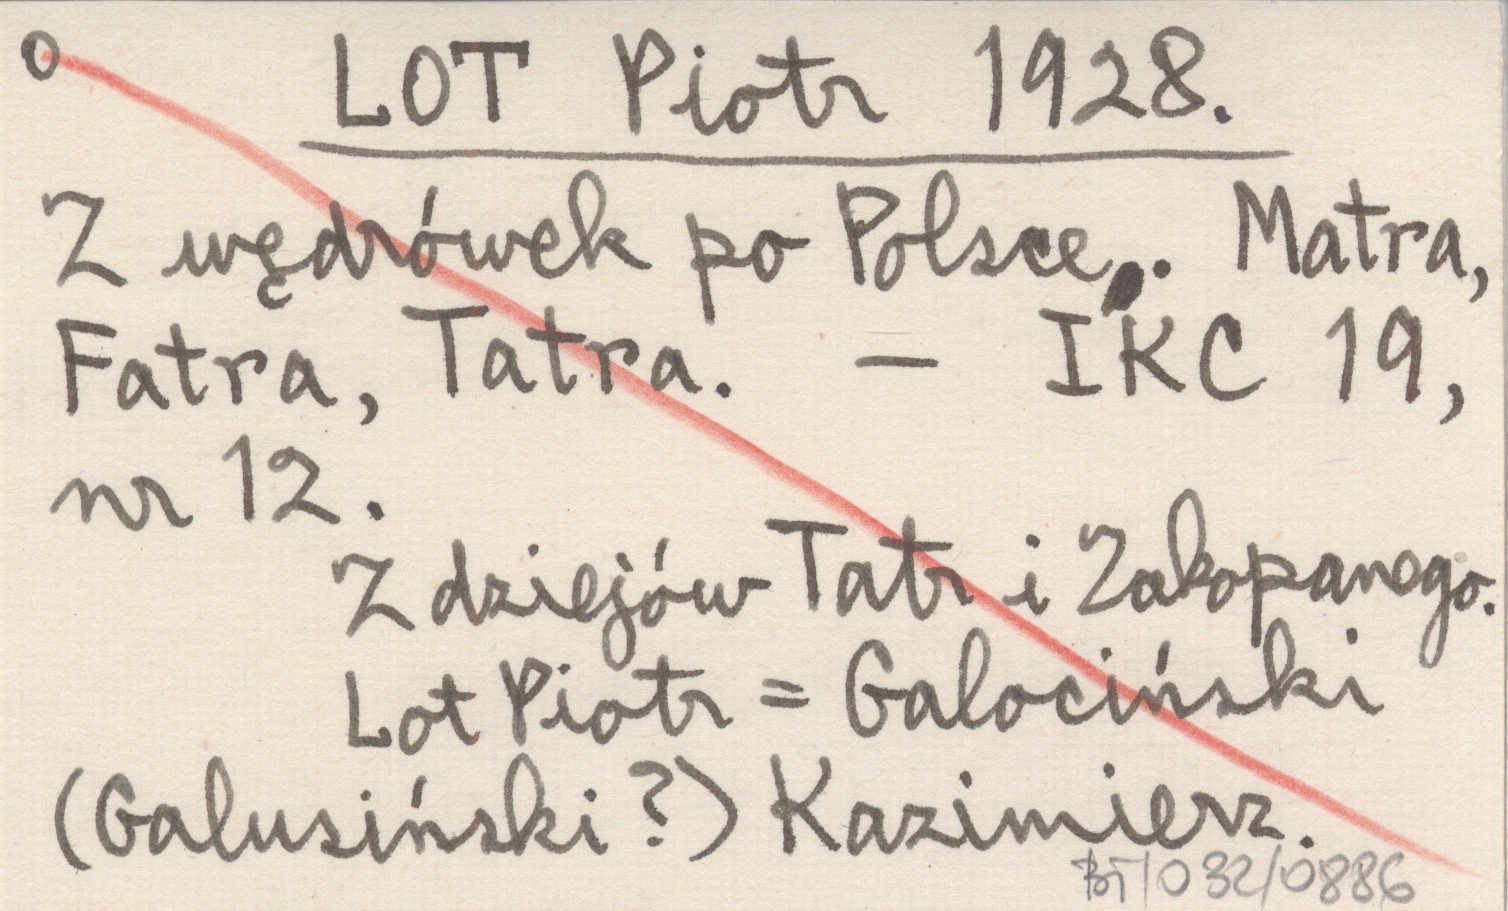 o LOT Piotr 1928.
Z wędrówek po Polsce. Matra,
Fatra, Tatra. — IKC 19,
nr 12.
Z dziejów Tatr i Zakopanego.
Lot Piotr = Galociński
(Galusiński?) Kazimierz.
BT/032/0886